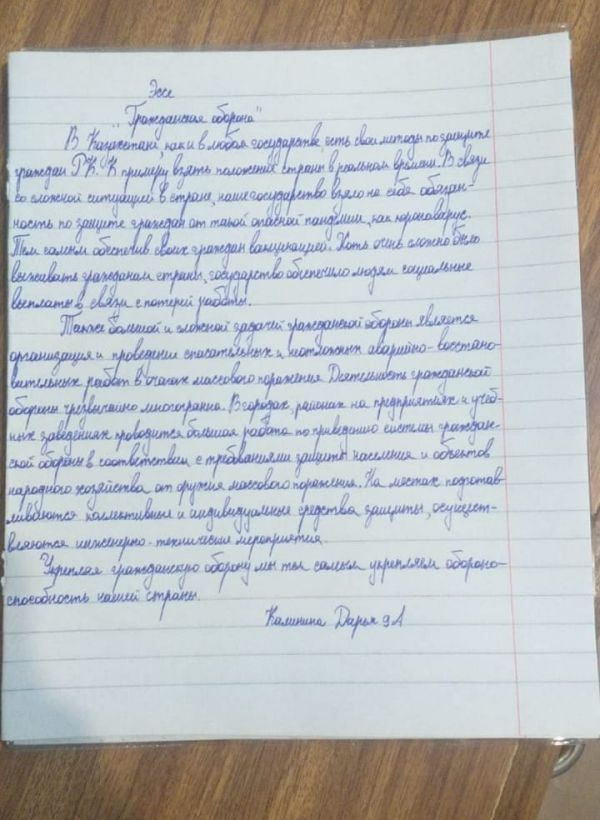 Эссе
"Гражданская оборона"
В Казахстане, как и в любом государстве есть свои методы по защите
граждан РК. К примеру, взять положение страны в реальном времени. В связи
со сложной ситуацией в стране, наше государство взяло на себя обязан-
ность по защите граждан от такой опасной пандемии, как коронавирус.
Тем самым обеспечив своих граждан вакцинацией. Хоть очень сложно было
выживать гражданам страны, государство обеспечило людям социальные
выплаты в связи с потерей работы.
Также большой и сложной задачей гражданской обороны является
организация и проведение спасательных и неотложных аварийно-восстано-
вительных работ в очагах массового поражения. Деятельность гражданской
обороны чрезвычайно многогранна. В городах, районах на предприятиях и учеб-
ных заведениях проводится большая работа по приведению системы граждан-
ской обороны в соответствии с требованиями защиты населения и объектов
народного хозяйства от оружия массового поражения. На местах подготав-
ливаются коллективные и индивидуальные средства защиты, осущест-
вляются инженерно-технические мероприятия.
Укрепляя гражданскую оборону мы тем самым укрепляем обороно-
способность нашей страны.
Калинина Дарья 9А